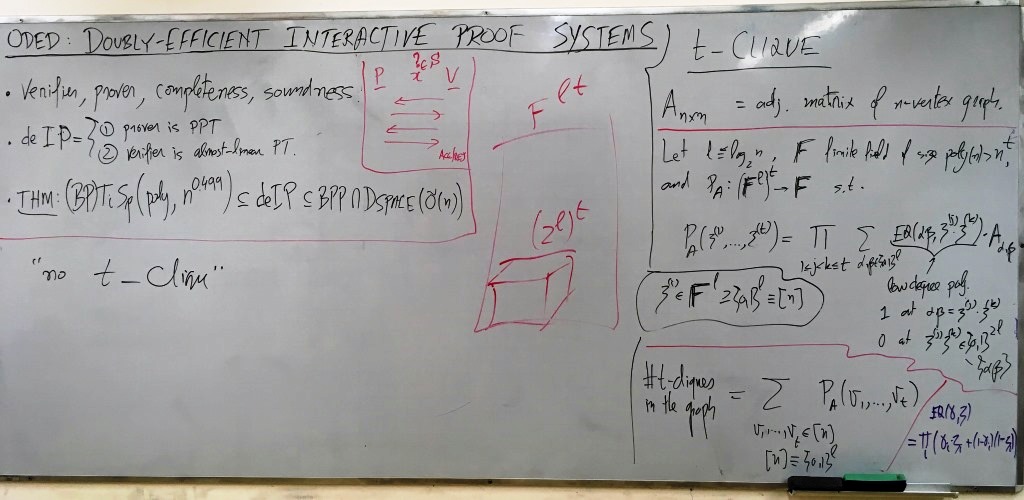 ODED: DOUBLY-EFFICIENT INTERACTIVE PROOF SYSTEMS
• Verifier, prover, completeness, soundness.
• deIP = { ① prover is PPT
② verifier is almost-linear PT.
• THM: (BP)TiSp(poly, n^0.499) ⊆ deIP ⊆ BPP ∩ DSPACE(Õ(n))
"no t-Clique"
P x ?∈ S V
Acc/Rej
F^{ℓt}
(2^ℓ)^t
t-CLIQUE
A_{n×n} = adj. matrix of n-vertex graph.
Let ℓ ≡ log_2 n, F finite field of size poly(n) > n^t,
and P_A: (F^ℓ)^t → F s.t.
P_A(ξ^{(1)},...,ξ^{(t)}) = ∏_{1≤j<k≤t} ∑_{α,β∈{0,1}^ℓ} EQ(αβ, ξ^{(j)}·ξ^{(k)})·A_{α,β}
low degree poly.
1 at αβ = ξ^{(j)}·ξ^{(k)}
0 at ξ^{(j)}ξ^{(k)} ∈ {0,1}^{2ℓ} \ {αβ}
ξ^{(i)} ∈ F^ℓ ⊇ {0,1}^ℓ ≡ [n]
#t-cliques in the graph = ∑ P_A(v_1,...,v_t)
v_1,...,v_t ∈ [n]
[n] ≡ {0,1}^ℓ
EQ(γ,ξ)
= ∏(γ_i ξ_i + (1-γ_i)(1-ξ_i))